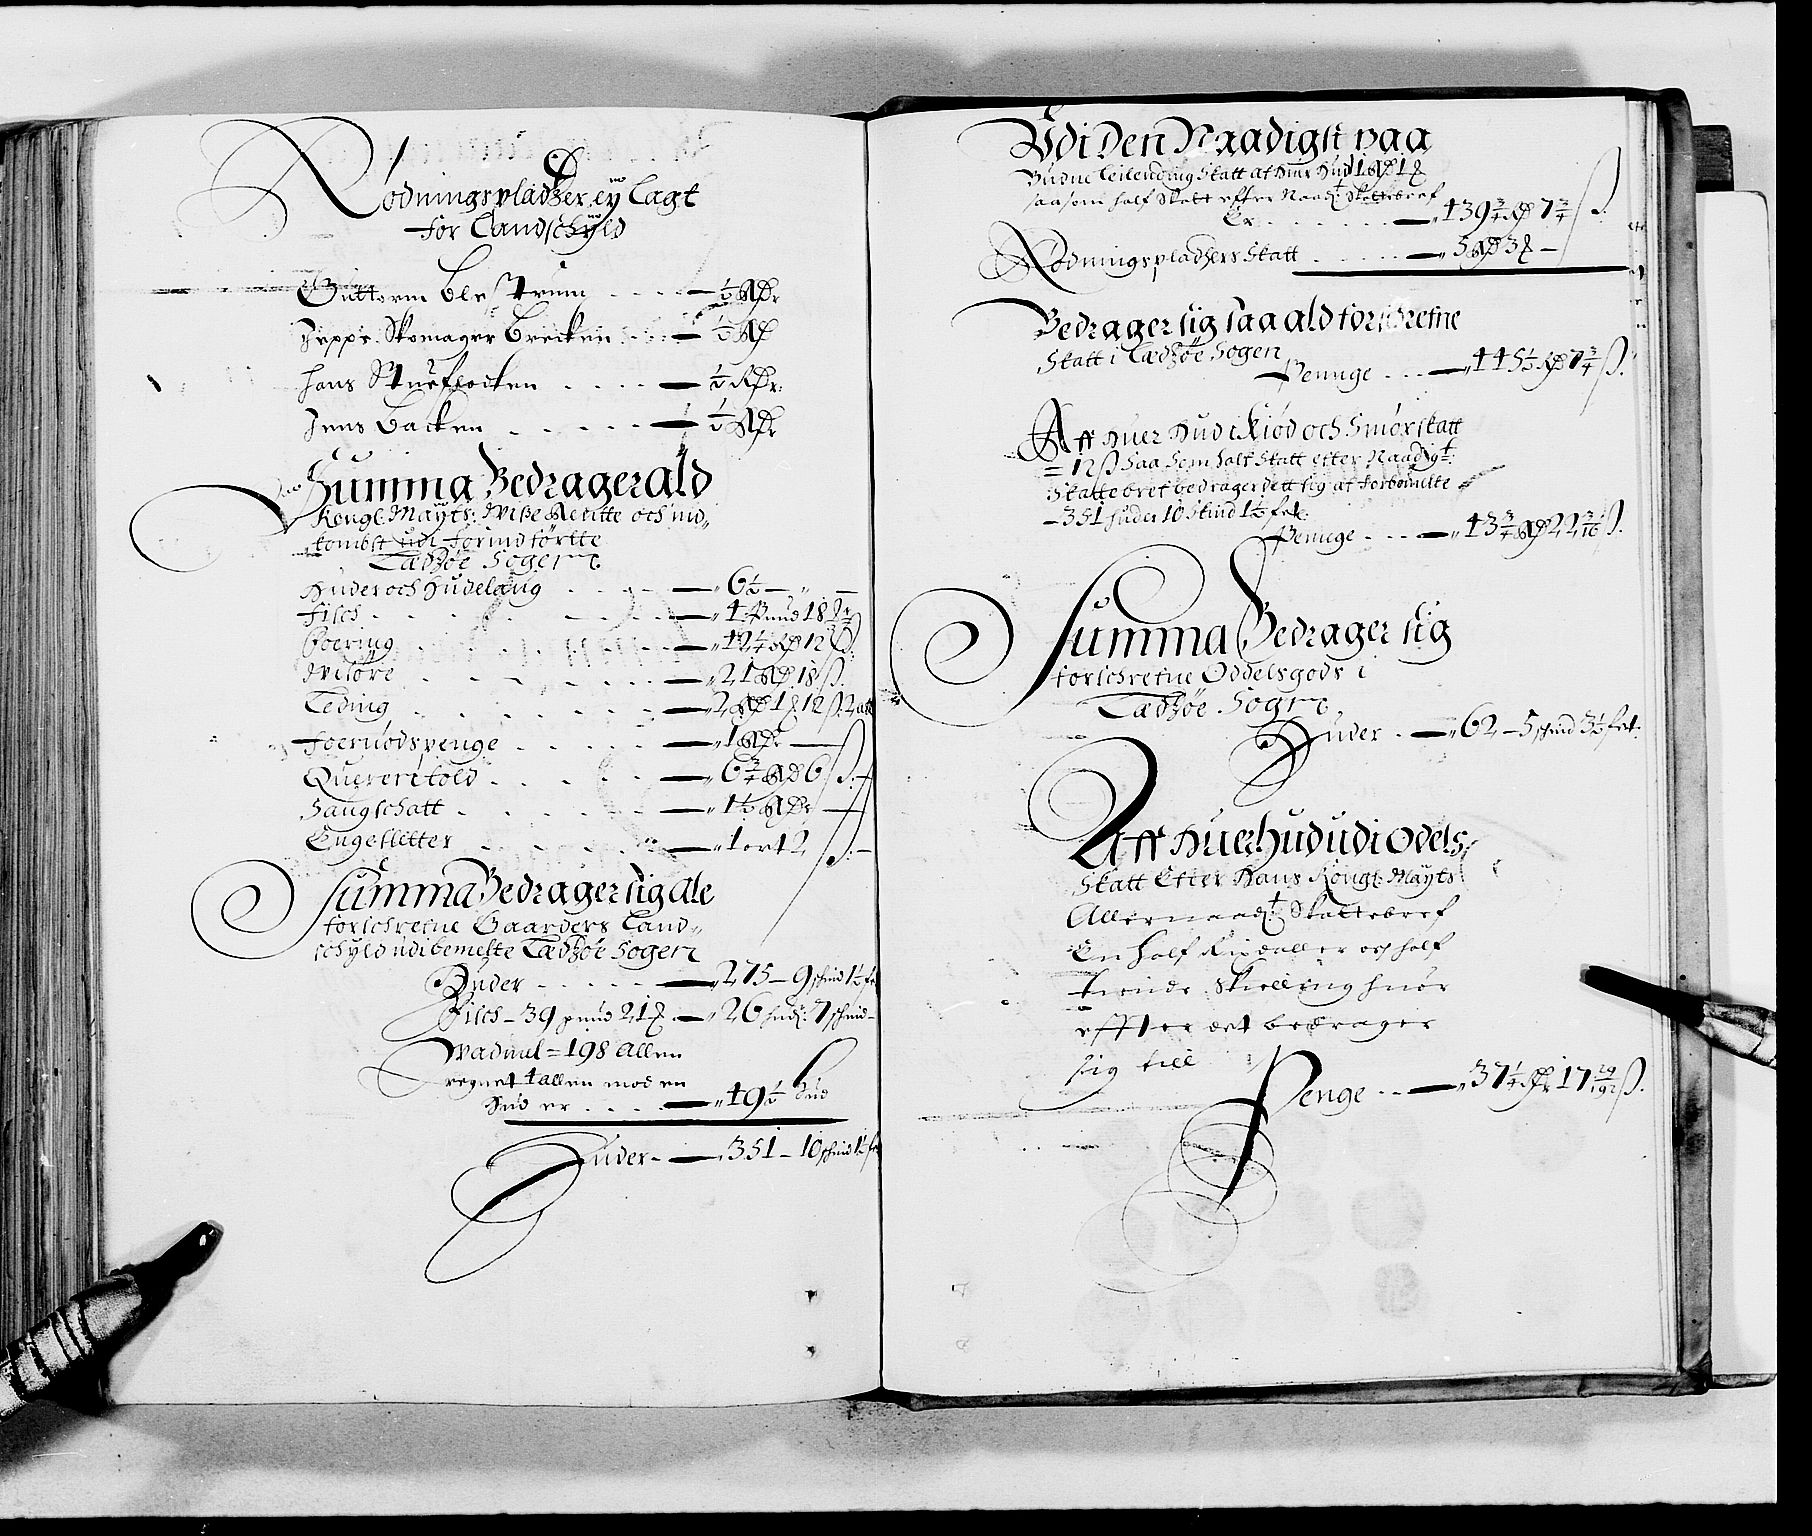 Rødningspladtzer eÿ Lagt
for Landschÿld
Guttorm Blestrum - - - - ½ Rdr
Jeppe Skomager Brecken - - - - ½ Rd
Hans Stueflocken - - - - ½ Rdr:
Jens Backen - - - - - ½ Rdr
Summa Bedrager ald
Kongl: Maÿts: Wiße Rettitte och ind„
kombst udi forindførtte
Lædzøe Sogen
Huder och Hudelaug - - - - „6½ – „ –
Fisch - - - - - - „4 Pund 18
Foering - - - - - „12¼ Rd 12 ß.
Wisøre - - - - - „21 Rd 18 ß.
Leding - - - - - „2 Rd 1 12 ß 2 alb
Foernødspenge - - - - „1 Rdr –
Quernetold - - - - „6¾ Rd 6 ß.
Saugschatt - - - - - „1½ Rdr –
Engesletter - - - - „1 ort 2 ß. –
Summa Bedrager sig ale
forschrefne Gaarders Land„
schÿld udi bemelte Lædzøe Sogen
Huder - - - - - „275 – 9 schind 1½ f
Fisch – 39 pund 21 - „26 hud: 7 schind –
Wadmel = 198 Allen
regnet 4 allen mod en
Hud er - - - - „49½ Hud
Huder - - „351 – 10 schind 1½ f
Udi Den Naadigst paa
Budne Leilending Skatt af Huer Hud 1 Rd 1
saasom half Skatt efter Naad: Skattebref
Er - - - - - - „439¾ Rd 7¾ ß.
Rødningspladtzers Skatt - - - - - „5 Rd 3 –
Bedrager sig saa ald forschrefne
Skatt i Lædzøe Sogen
Penuge - - - „445½ Rd 7¾ ß.
Aff Huer Hud i Kiød och Smørskatt
= 12 ß Saa Som half Skatt efter Naadigt:
Skattebref bedrager dett sig af forbemelte
– 351 Huder 10 Skind 1½ fet:
Penuge - - - - „43¾ Rd 22 3/16 ß.
Summa Bedrager sig
forschrefne Oddelsgods i
Lædzøe Sogn
Huder - „62 – 5 schind 3½ fet:
Aff Huer Hud udi Odels
Skatt Efter Hans Kongl: Maÿts
Allernaadt: Skattebref
En half Rixdaller och half
Skielling huor
effter det bedrager
sig till
Penge - - „37¼ Rdr 17 ß.